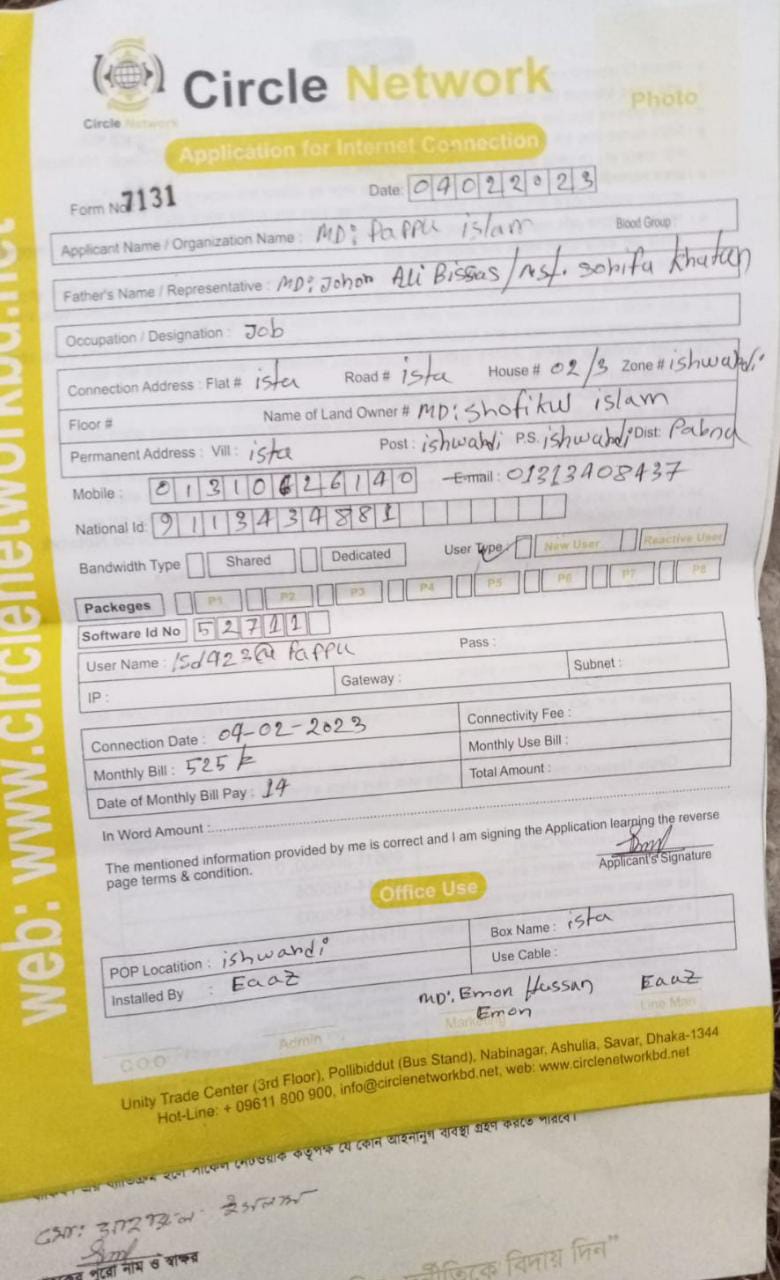 Circle Network
Circle Network
Photo
Application for Internet Connection
Form No 7131 Date: 04022023
Applicant Name / Organization Name : MD: Pappu islam Blood Group :
Father's Name / Representative : MD: Johon Ali Bissas / Mst. Sohifa Khatun
Occupation / Designation : Job
Connection Address : Flat # ista Road # ista House # 02/3 Zone # ishwardi
Floor # Name of Land Owner # MD: Shofikul islam
Permanent Address : Vill : ista Post : ishwardi P.S. ishwardi Dist: Pabna
Mobile : 01310626140 E-mail : 01313408437
National Id: 9113434881
Bandwidth Type Shared Dedicated User Type : New User Reactive User
Packeges P1 P2 P3 P4 P5 P6 P7 P8
Software Id No 52711
User Name : Pappu Pass :
IP : Gateway : Subnet :
Connection Date : 04-02-2023 Connectivity Fee :
Monthly Bill : 525 Monthly Use Bill :
Date of Monthly Bill Pay : 14 Total Amount :
In Word Amount :
The mentioned information provided by me is correct and I am signing the Application learning the reverse
page terms & condition.
Applicant's Signature
Office Use
POP Locatition : ishwardi Box Name : ista
Installed By : Eaaz Use Cable :
MD: Emon Hussan Eaaz
Emon
C.O.O Admin Marketing Line Man
Unity Trade Center (3rd Floor), Pollibiddut (Bus Stand), Nabinagar, Ashulia, Savar, Dhaka-1344
Hot-Line: + 09611 800 900, info@circlenetworkbd.net, web: www.circlenetworkbd.net
web: www.circlenetworkbd.net
কর্তৃপক্ষ যে কোন আইনানুগ ব্যবস্থা গ্রহণ করতে পারবে।
মো:
পুরো নাম ও স্বাক্ষর
বিদায় দিন"